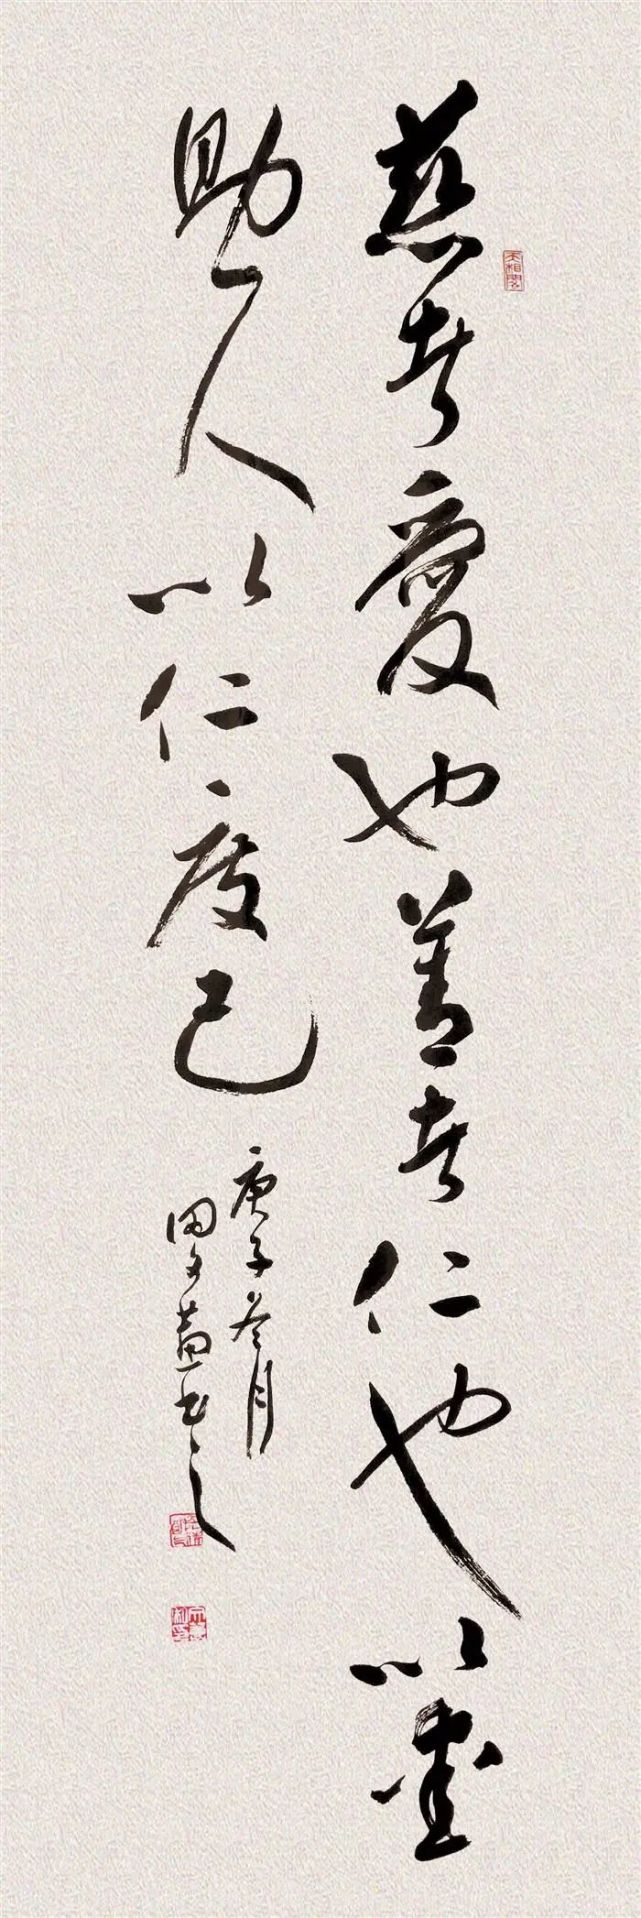 慈者愛也善者仁也以愛
助人以仁度己
庚子冬月
田書之